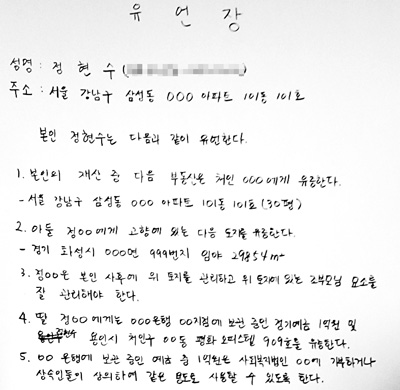 유 언 장
성명 : 정 현 수 (
주소 : 서울 강남구 삼성동 000 아파트 101동 101호
본인 정현수는 다음과 같이 유언한다.
1. 본인의 재산 중 다음 부동산은 처인 000에게 유증한다.
- 서울 강남구 삼성동 000 아파트 101동 101호 (30평)
2. 아들 정00에게 고향에 있는 다음 토지를 유증한다.
- 경기 화성시 000면 999번지 임야 29854㎡
3. 정00은 본인 사후에 위 토지를 관리하고 위 토지에 있는 조부모님 묘소를
잘 관리해야 한다.
4. 딸 정00에게는 000은행 00지점에 보관 중인 정기예금 1억원 및
용인시 처인구 00동 평화 오피스텔 909호를 유증한다.
5. 00 은행에 보관 중인 예금 중 1억원은 사회복지법인 00에 기부하거나
상속인들이 상의하여 같은 용도로 사용할 수 있도록 한다.